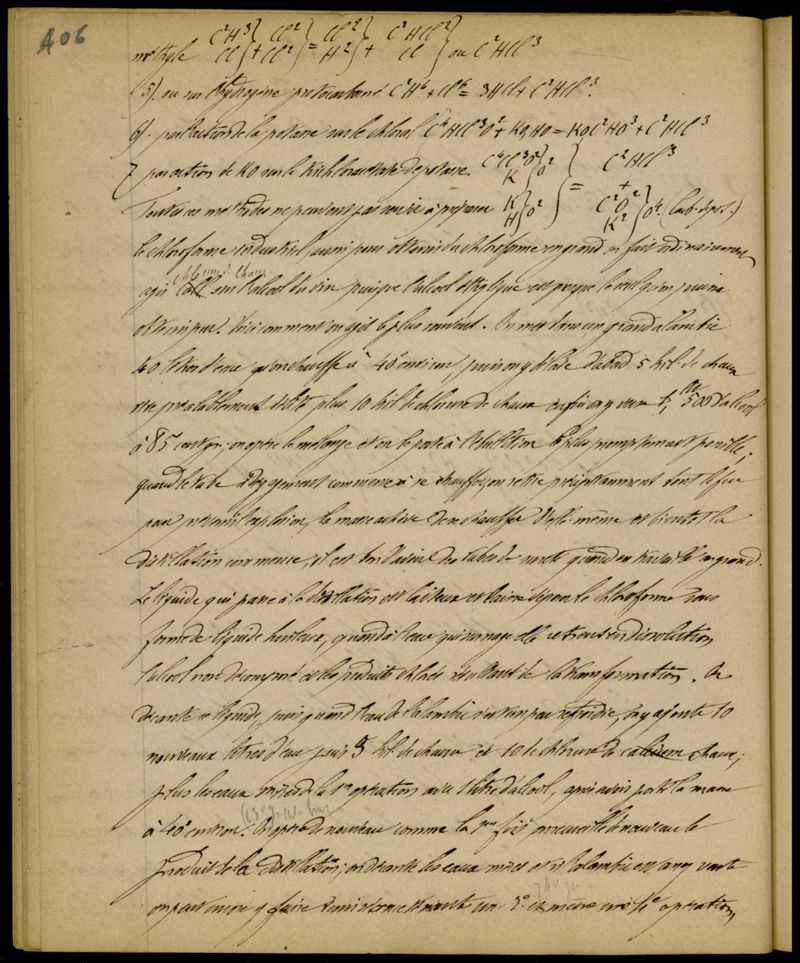 406
méthyle C²H³ Cl } + Cl² Cl² } = Cl² H² } + C²HCl² Cl } ou C²HCl³
5). ou sur l'hydrogène protocarboné C²H⁴ + Cl⁶ = 3HCl + C²HCl³.
6). par l'action de la potasse sur le chloral C⁴HCl³O² + KO,HO = KO C²HO³ + C²HCl³
7 par action de KO sur le trichloracétate de potasse. C⁴Cl³O² K } O² = C²HCl³
Toutes ces méthodes ne peuvent pas servir à préparer K H } O² + C²O² K² } O⁴ (Carb. de pot.)
le chloroforme industriel, aussi pour obtenir du chloroforme en grand on fait ordinairement
chlorure de chaux
agir sur l'alcool du vin puisque l'alcool éthylique est presque le seul qu'on puisse
obtenir pur. Voici comment on agit le plus souvent. On met dans un grand alambic
40 litres d'eau qu'on chauffe à 40° environ, puis on y délaie d'abord 5 kil. de chaux
vive préalablement délitée plus 10 kil de chlorure de chaux enfin on y verse 1, 500 d'alcool
à 85 cent.; on opère le mélange et on le porte à l'ébullition le plus promptement possible;
quand le tube à dégagement commence à se chauffer, on retire précipitamment tout le feu
pour prévenir l'explosion, la masse achève de se chauffer d'elle-même et bientôt la
distillation commence, il est bon d'avoir des tubes de sûreté quand on travaille en grand.
Le liquide qui passe à la distillation est laiteux et laisse déposer le chloroforme sous
forme de liquide huileux, quand à l'eau qui surnage elle retient en dissolution
l'alcool non décomposé et les produits chlorés résultant de la transformation. On
décante ce liquide, puis quand l'eau de l'alambic s'est un peu refroidie, on y ajoute 10
nouveaux litres d'eau puis 5 kil. de chaux et 10 de chlorure de chaux;
plus les eaux mères de la 1re opération avec 1 litre d'alcool, après avoir porté la masse
à 40° environ. On opère de nouveau comme la 1ère fois, on recueille de nouveau le
produit de la distillation; on décante les eaux mères et si l'alambic est assez vaste
on peut encore y faire de même une 3e et même une 4e opération